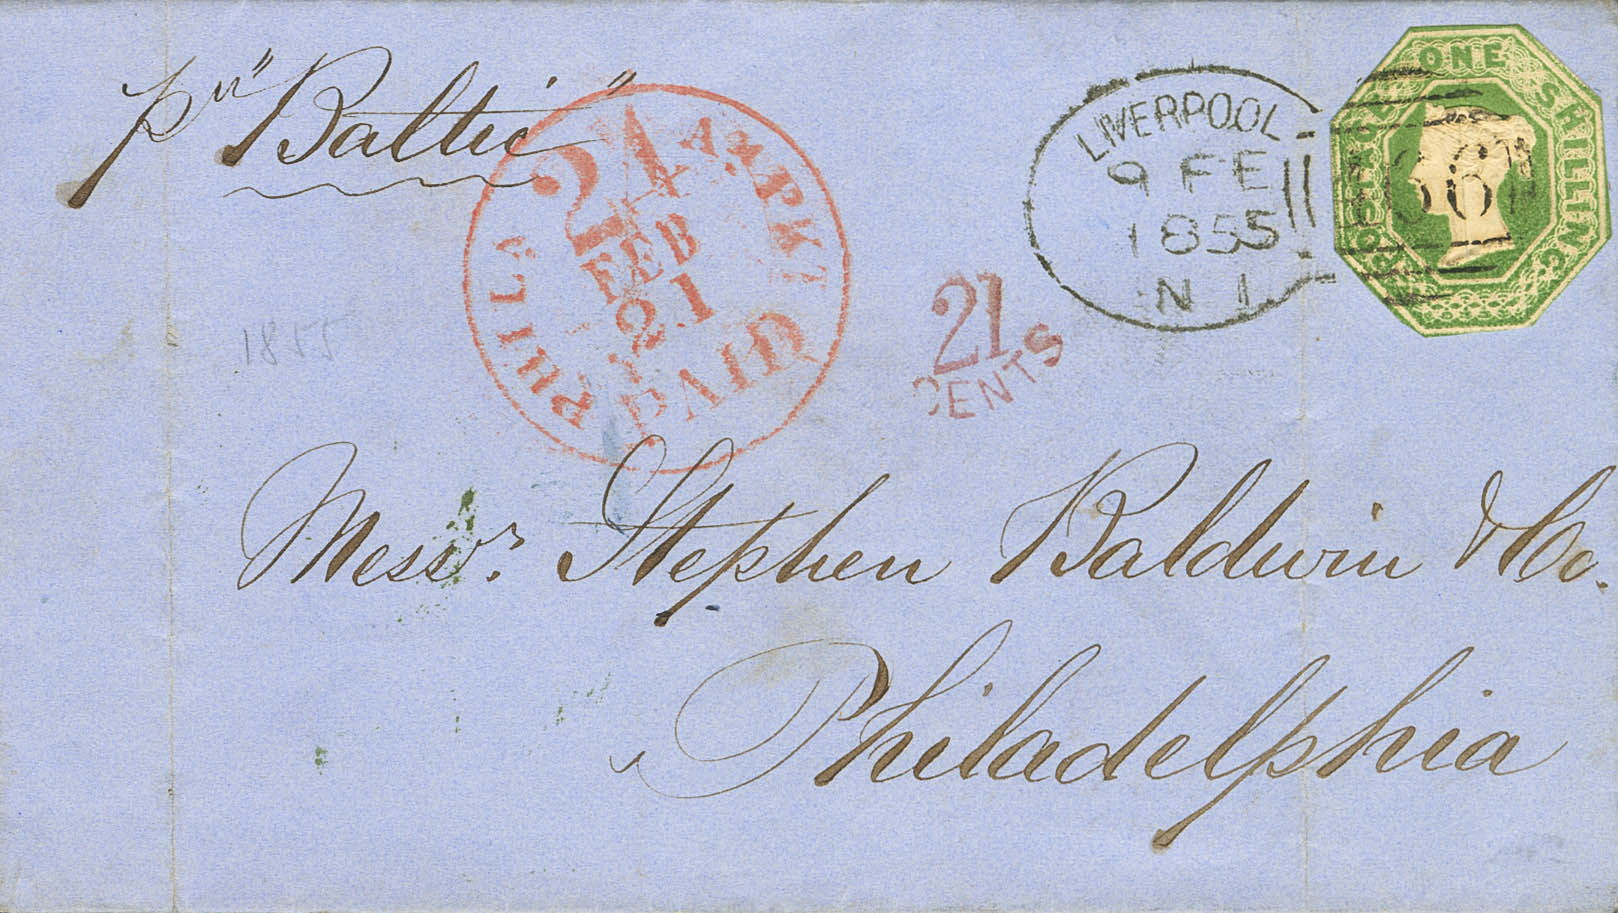 pr "Baltic"
ONE SHILLING
POSTAGE
LIVERPOOL
9 FE
1855
N 1
466
PHILA AM. PKT
24
FEB
21
PAID
21
CENTS
1855
Messrs. Stephen Baldwin & Co.
Philadelphia